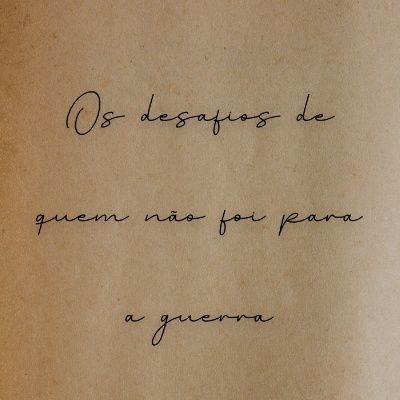 Os desafios de
quem não foi para
a guerra